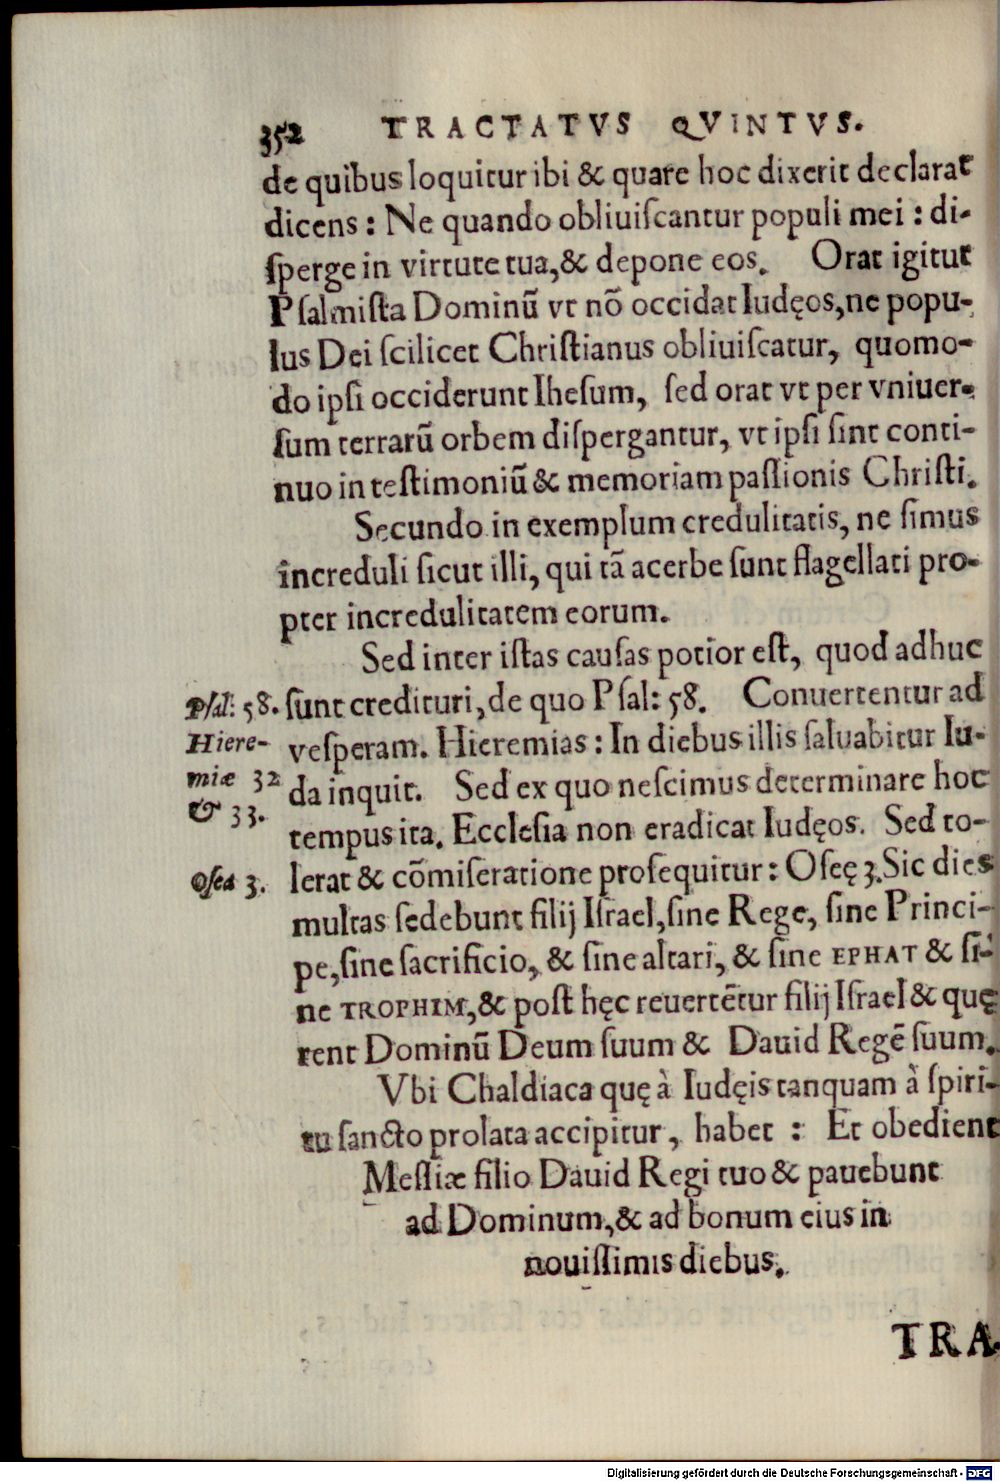 352 TRACTATVS QVINTVS.
de quibus loquitur ibi & quare hoc dixerit declarat
dicens : Ne quando obliuiſcantur populi mei : di-
ſperge in virtute tua, & depone eos. Orat igitur
Pſalmiſta Dominū vt nō occidat Iudęos, ne popu-
lus Dei ſcilicet Chriſtianus obliuiſcatur, quomo-
do ipſi occiderunt Iheſum, ſed orat vt per vniuer-
ſum terrarū orbem diſpergantur, vt ipſi ſint conti-
nuo in teſtimoniū & memoriam paſſionis Chriſti.
Secundo in exemplum credulitatis, ne ſimus
increduli ſicut illi, qui tā acerbe ſunt flagellati pro-
pter incredulitatem eorum.
Sed inter iſtas cauſas potior eſt, quod adhuc
Pſal: 58. ſunt credituri, de quo Pſal: 58. Conuertentur ad
Hiere- veſperam. Hieremias : In diebus illis ſaluabitur Iu-
miæ 32 da inquit. Sed ex quo neſcimus determinare hoc
& 33. tempus ita. Eccleſia non eradicat Iudęos. Sed to-
Oſea 3. lerat & cōmiſeratione proſequitur : Oſeę 3. Sic dies
multas ſedebunt filij Iſrael, ſine Rege, ſine Princi-
pe, ſine ſacrificio, & ſine altari, & ſine EPHAT & ſi-
ne TROPHIM, & poſt hęc reuertētur filij Iſrael & quę
rent Dominū Deum ſuum & Dauid Regē ſuum.
Vbi Chaldiaca quę à Iudęis tanquam à ſpiri-
tu ſancto prolata accipitur, habet : Et obedient
Meſſiæ filio Dauid Regi tuo & pauebunt
ad Dominum, & ad bonum eius in
nouiſſimis diebus.
TRA-
Digitalisierung gefördert durch die Deutsche Forschungsgemeinschaft - DFG